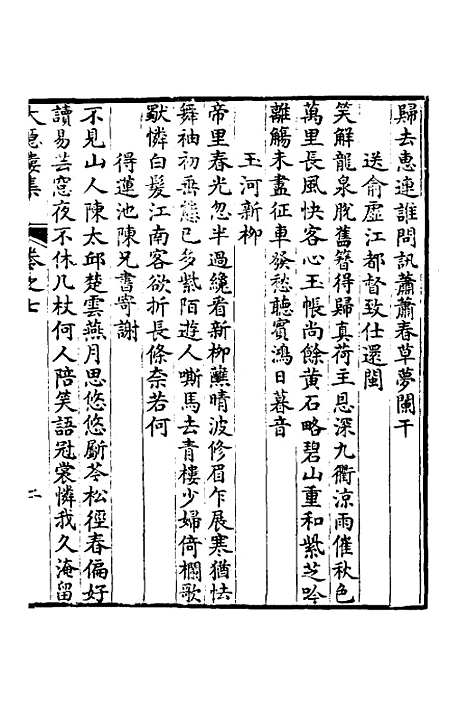 歸去惠連誰問訊蕭蕭春草夢闌干
送俞虛江都督致仕還閩
笑解龍泉脫舊簪得歸真荷主恩深九衢涼雨催秋色
萬里長風快客心玉帳尚餘黃石略碧山重和紫芝吟
離觴未盡征車發愁聽賓鴻日暮音
玉河新柳
帝里春光忽半過纔看新柳蘸晴波修眉乍展寒猶怯
舞袖初垂態已多紫陌遊人嘶馬去青樓少婦倚欄歌
獨憐白髮江南客欲折長條奈若何
得蓮池陳兄書寄謝
不見山人陳太邱楚雲燕月思悠悠斸苓松徑春偏好
讀易芸窓夜不休几杖何人陪笑語冠裳憐我久淹留
大隱樓集
卷之七
二